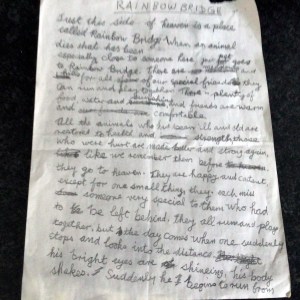 RAINBOW BRIDGE
Just this side of heaven is a place
called Rainbow Bridge. When an animal
dies that has been
especially close to someone here, pet goes
to Rainbow Bridge. There are and
for all of our special friends they
can run and play together. There is plenty of
food, water and and friends are warm
and comfortable.
All the animals who had been ill and old are
restored to health and strength; those
who were hurt are made better and strong again,
like we remember them before
they go to heaven. They are happy and content
except for one small thing; they each miss
someone very special to them who had
to be left behind, they all run and play
together, but the day comes when one suddenly
stops and looks into the distance
his bright eyes are shining, his body
shakes. Suddenly he begins to run from